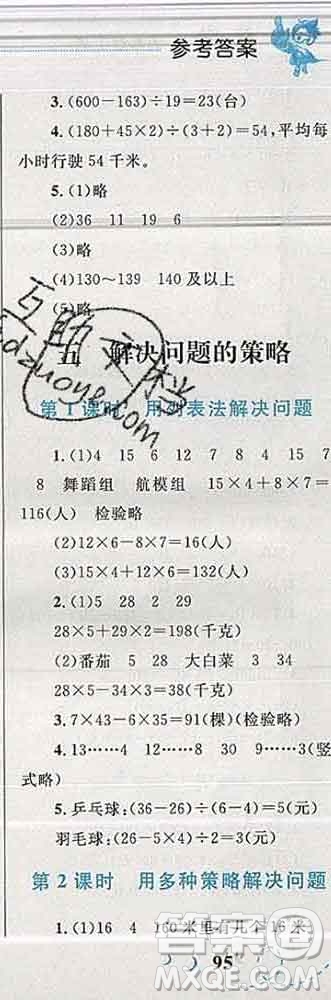 参考答案
3.(600－163)÷19＝23(台)
4.(180＋45×2)÷(3＋2)＝54,平均每
小时行驶 54 千米。
5.(1)略
(2)36 11 19 6
(3)略
(4)130～139 140 及以上
(5)略
五 解决问题的策略
第 1 课时 用列表法解决问题
1.(1)4 15 6 12 7 8 4 15 7
8 舞蹈组 航模组 15×4＋8×7＝
116(人) 检验略
(2)12×6－8×7＝16(人)
(3)15×4＋12×6＝132(人)
2.(1)5 28 2 29
28×5＋29×2＝198(千克)
(2)番茄 5 28 大白菜 3 34
28×5－34×3＝38(千克)
3.7×4＋21×3＝91(棵)(检验略)
4.13……4 12……8 30 9……3(竖
式略)
5.乒乓球:(36－26)÷(6－4)＝5(元)
羽毛球:(26－5×4)÷2＝3(元)
第 2 课时 用多种策略解决问题
1.(1)16 4 160 米里有几个 16 米
95